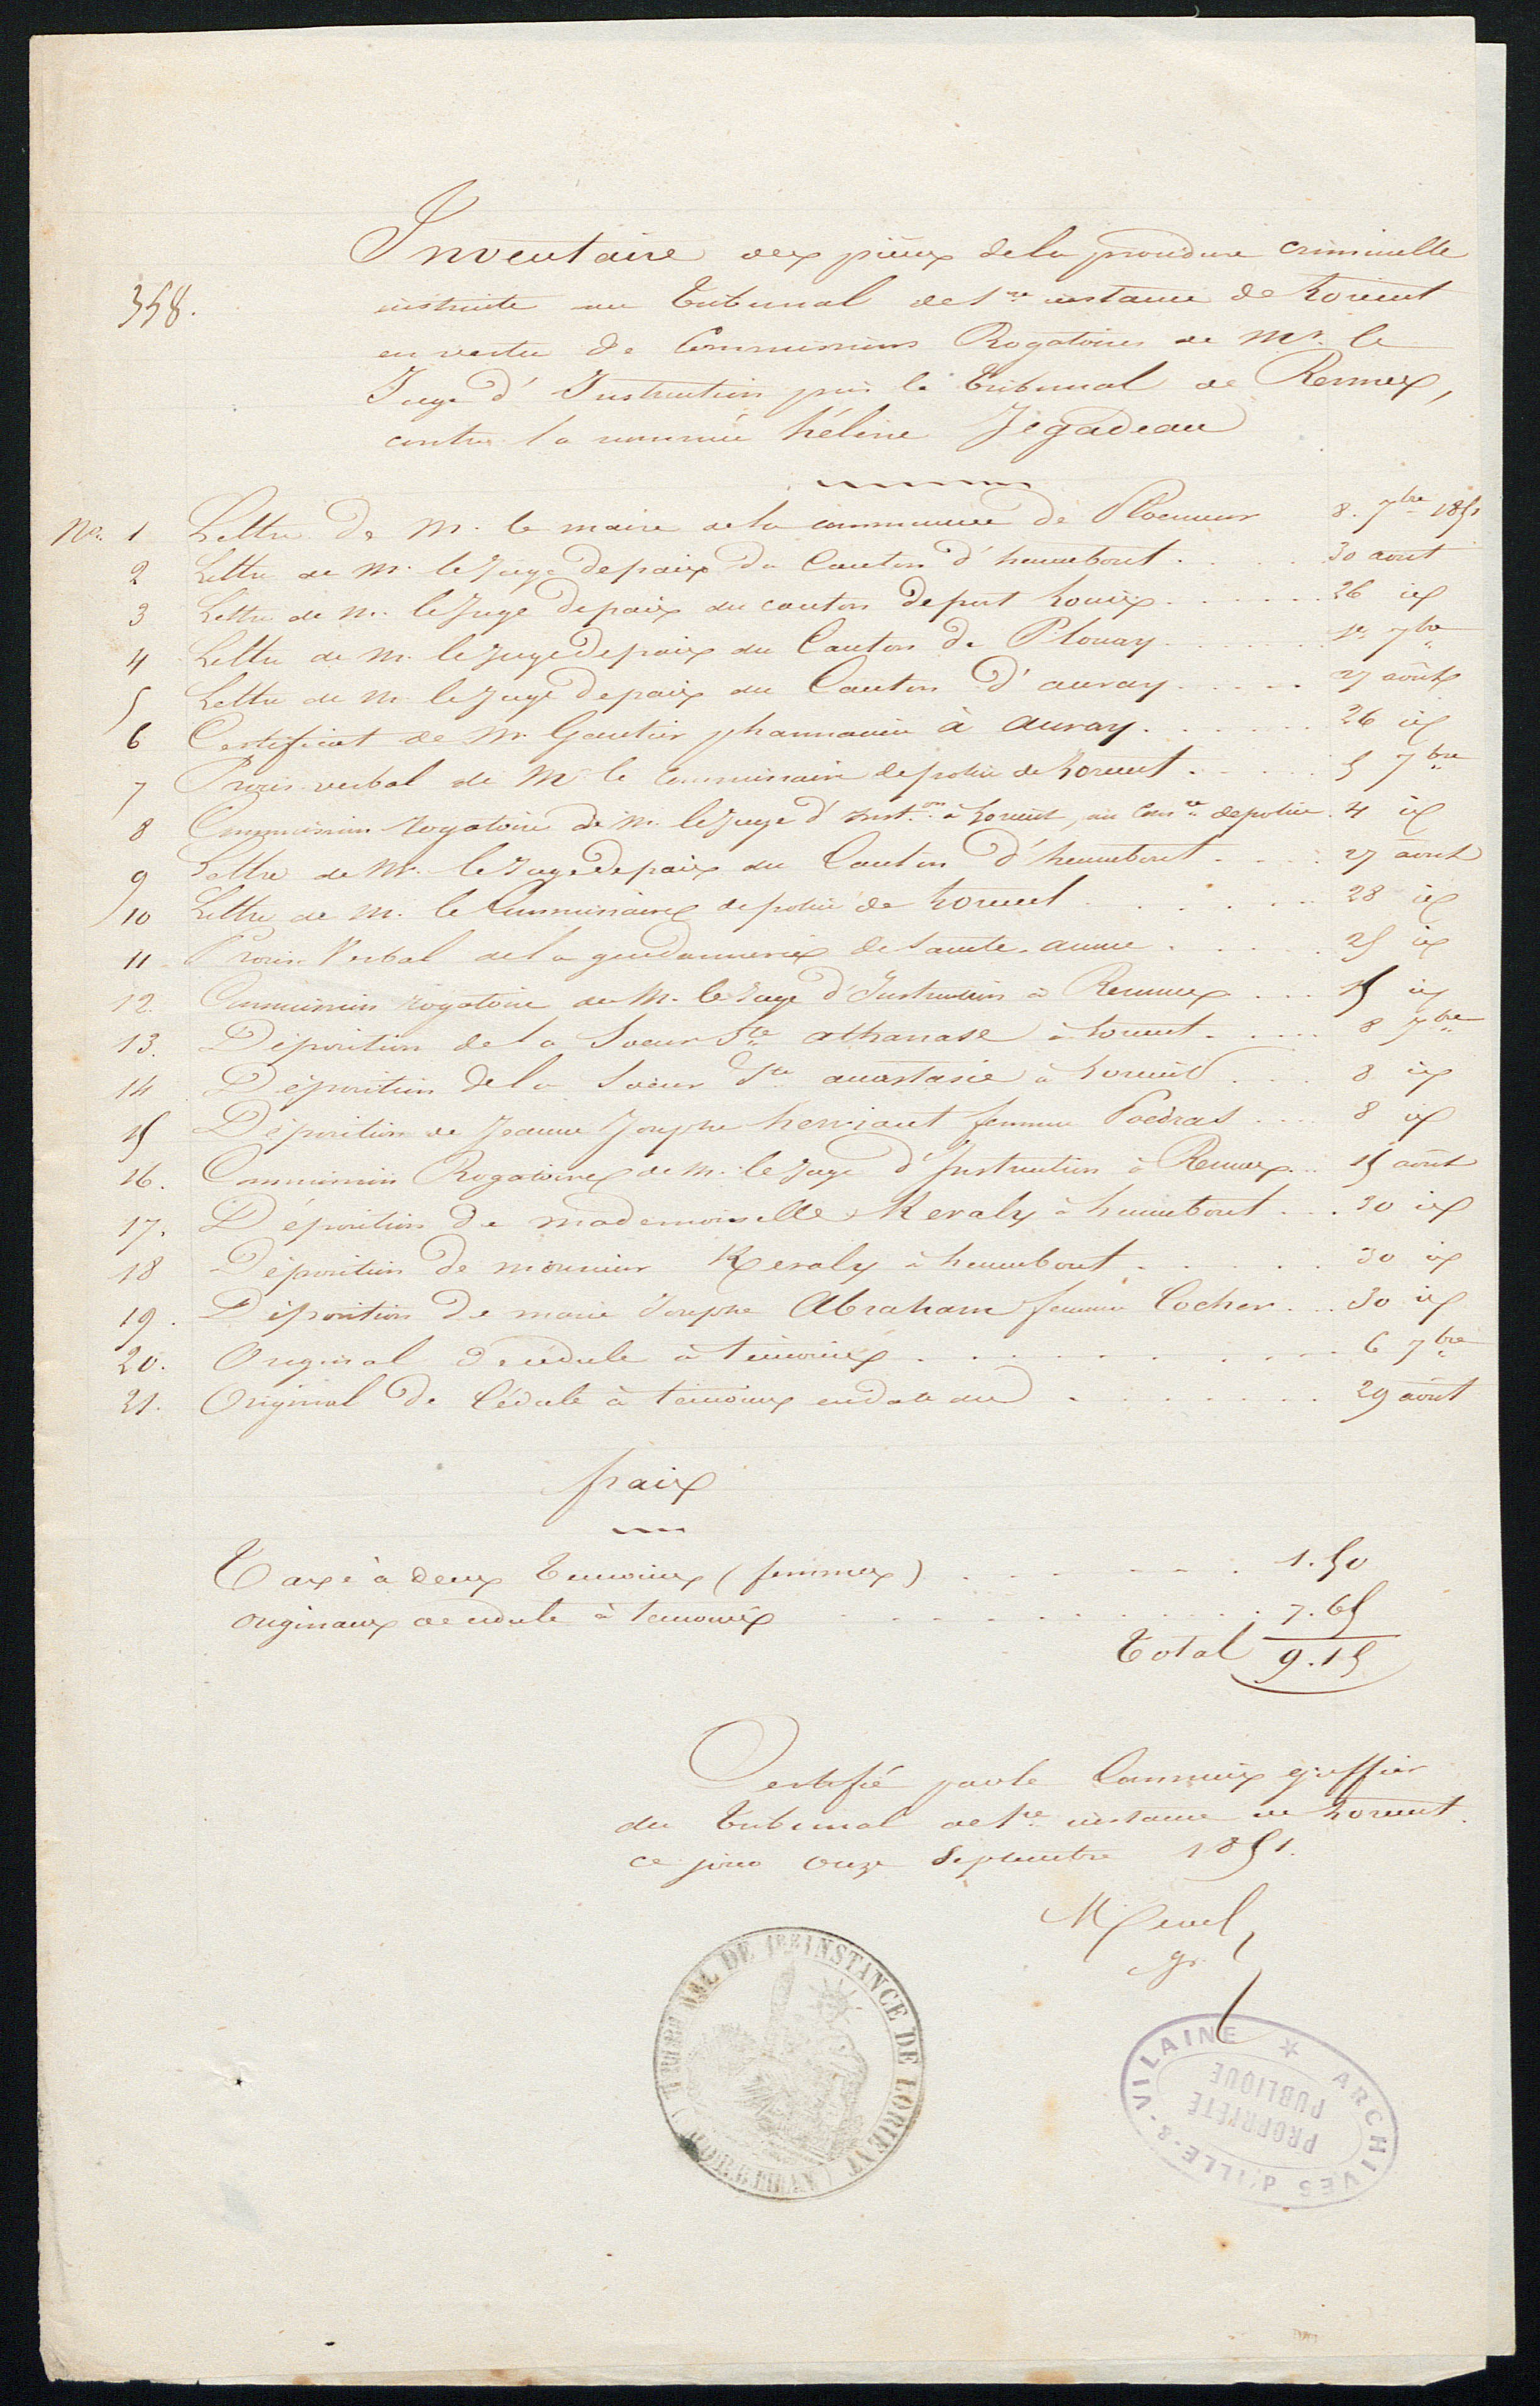 Inventaire des pièces de la procédure criminelle
358.
instruite au Tribunal de 1re instance de Lorient
en vertu de Commissions Rogatoires de Mr. le
Juge d'Instruction près le Tribunal de Rennes,
contre la nommée hélène Jégadeau
Nos. 1 Lettre de M. le maire de la commune de Ploemeur 8. 7bre 1851
2 Lettre de M. le Juge de paix du Canton d'hennebont. 30 aout
3 Lettre de M. le Juge de paix du canton de port Louis 26 id
4 Lettre de M. le Juge de paix du Canton de Plouay 1er 7bre
5 Lettre de M. le Juge de paix du Canton d'auray 27 août
6 Certificat de Mr Gautier pharmacien à auray. 26 id
7 Procès verbal de Mr le Commissaire de police de Lorient. 5 7bre
8 Commission rogatoire de M. le Juge d'Inst.on à Lorient, au Comre de police. 4 id
9 Lettre de Mr. le Juge de paix du Canton d'hennebont 27 aout
10 Lettre de M. le Commissaire de police de Lorient 28 id
11 Procès Verbal de la gendarmerie de Sainte-anne 25 id
12. Commission rogatoire de M. le Juge d'Instruction à Rennes 15 id
13. Déposition de la Soeur Ste athanase à Lorient. 8 7bre
14 Déposition de la Soeur Ste anastasie à Lorient 8 id
15 Déposition de Jeanne Josephe henriant femme Poedras 8 id
16. Commission Rogatoire de M. le Juge d'Instruction à Rennes 15 août
17. Déposition de mademoiselle Keraly à hennebont 30 id
18 Déposition de monsieur Keraly à hennebont 30 id
19. Déposition de marie Josephe Abraham femme Cocher 30 id
20. Original de cédule à témoins 6 7bre
21. Original de Cédule à témoins en date du 29 août
frais
Taxe à deux témoins (femmes) 1.50
originaux de cédule à témoins 7.65
Total 9.15
Certifié par le Commis greffier
du Tribunal de 1re instance de Lorient.
ce jour onze Septembre 1851.
gr.
TRIBUNAL DE 1RE INSTANCE DE LORIENT (MORBIHAN)
ARCHIVES d'ILLE-&-VILAINE *
PROPRIÉTÉ
PUBLIQUE